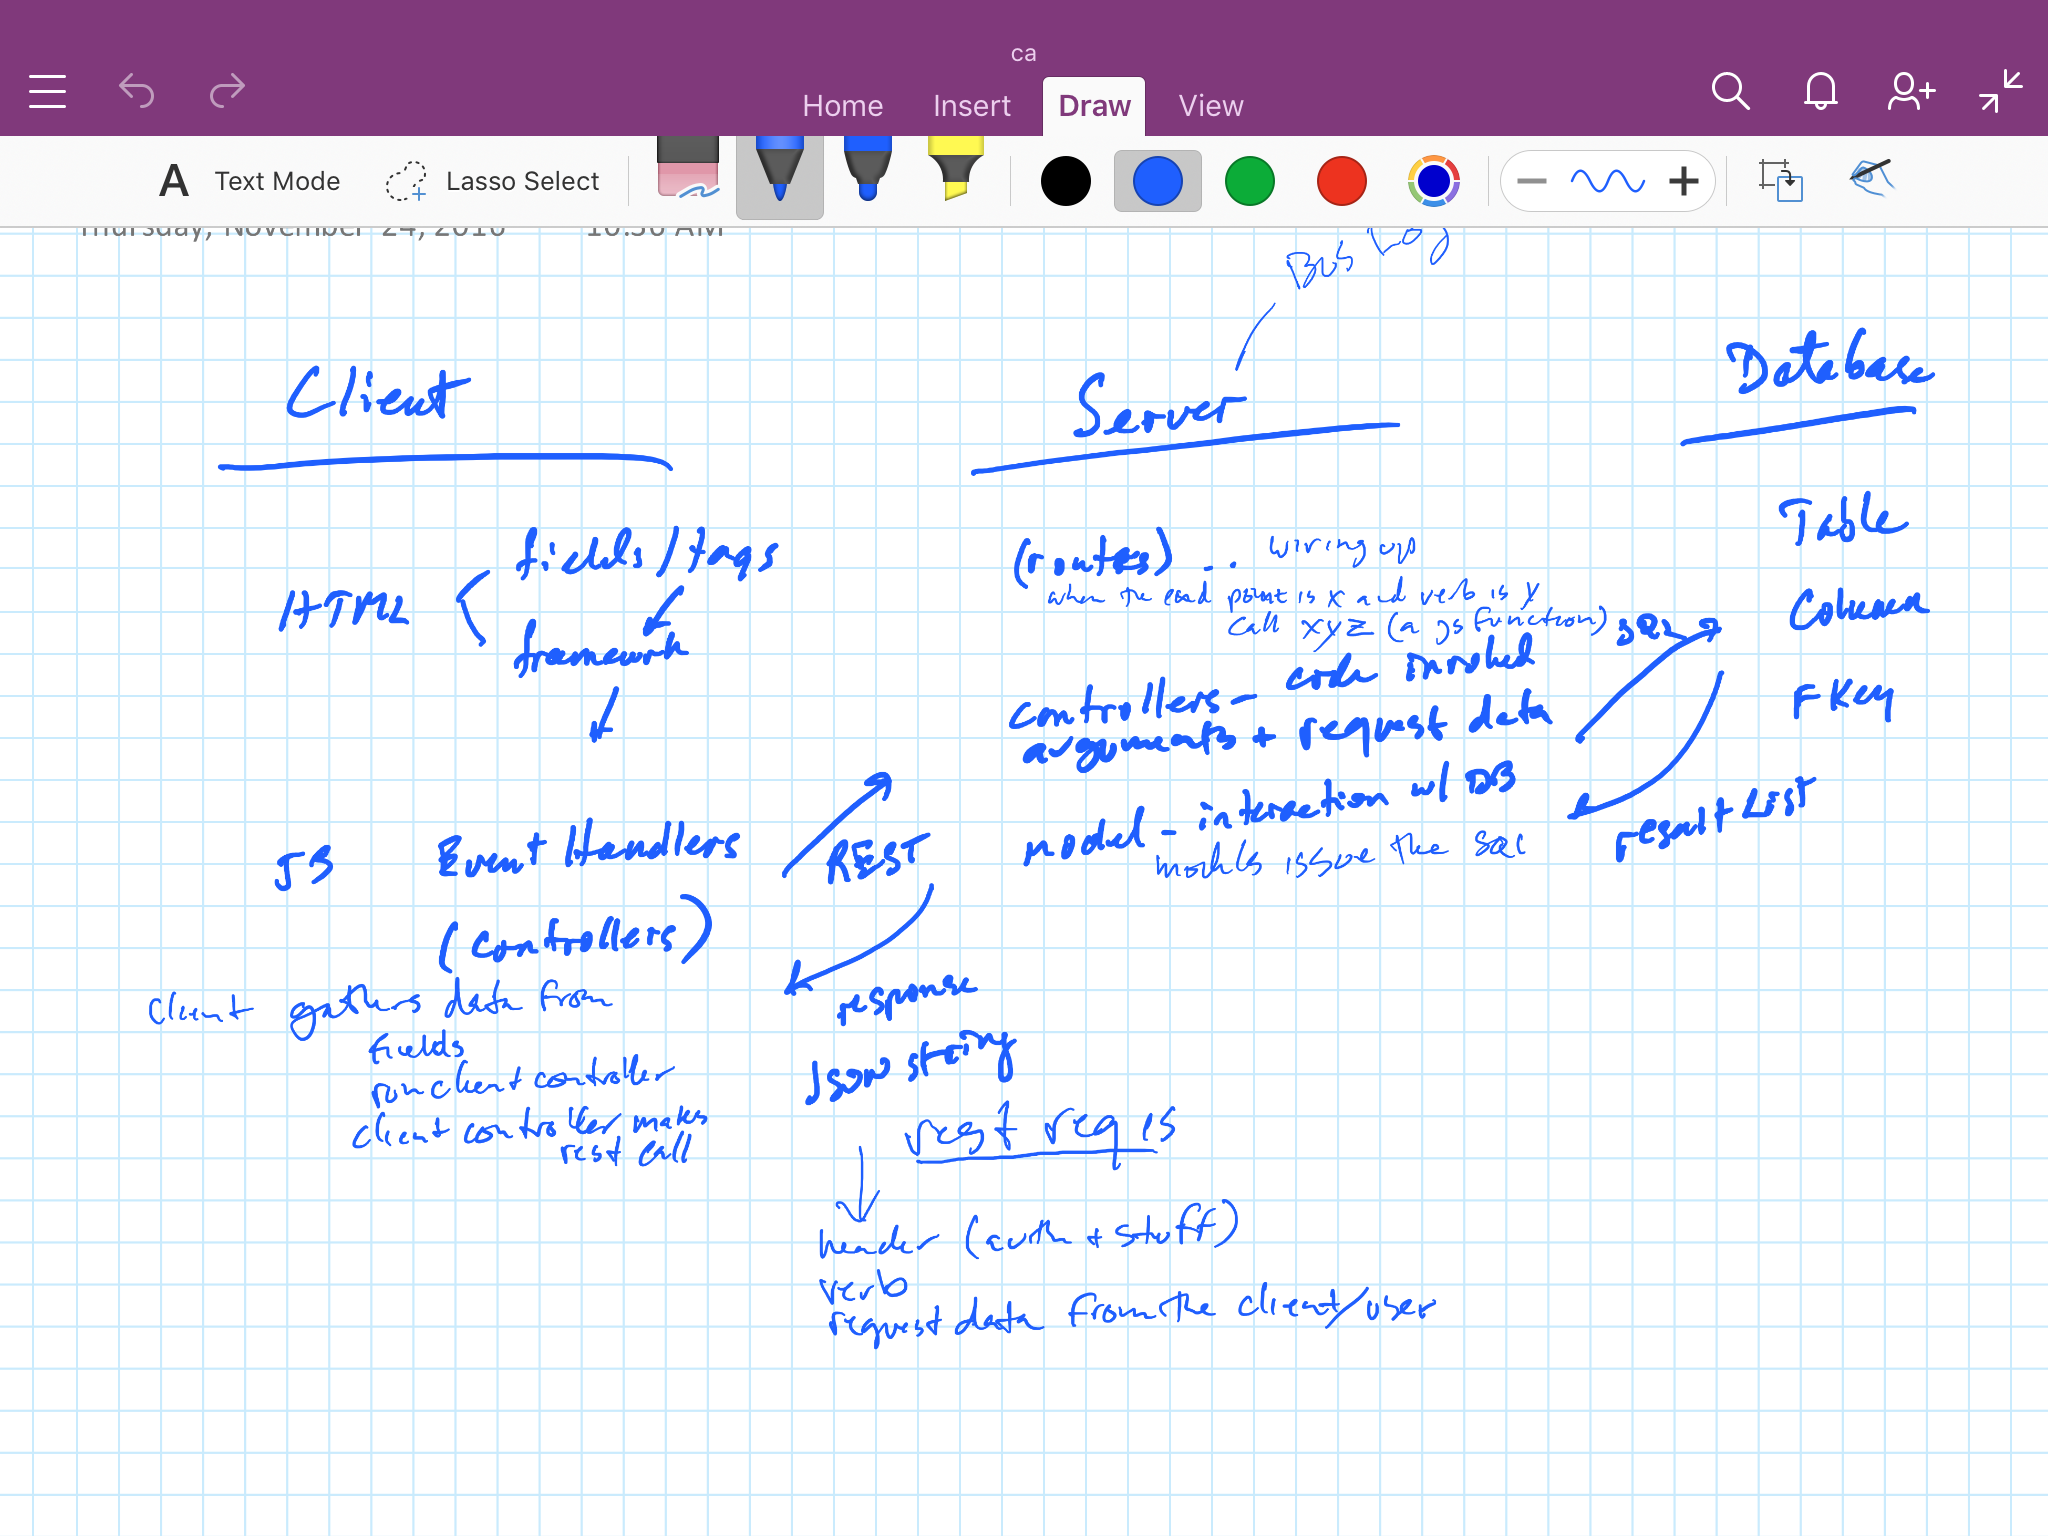 ca
Home Insert Draw View
A Text Mode Lasso Select
Thursday, November 24, 2016 10:36 AM
Bus Log
Client
Server
Database
HTML
fields/tags
framework
JS Event Handlers
(controllers)
client gathers data from
fields
run client controller
client controller makes
rest call
REST
response
Json string
rest req is
header (auth + stuff)
verb
request data from the client/user
(routes) .. wiring up
when the end point is x and verb is y
call xyz (a js function)
controllers - code invoked
arguments + request data
model - interaction w/ DB
models issue the sql
SQL
result list
Table
Column
F Key